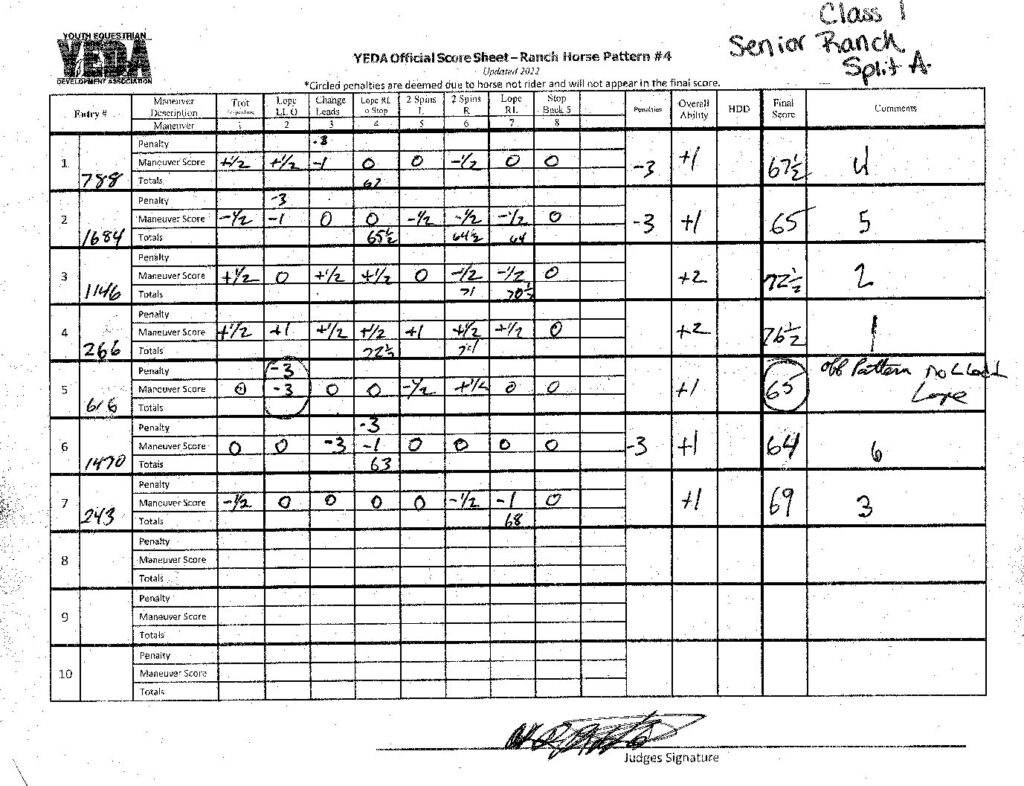 Class 1
Senior Ranch
Split A.
YOUTH EQUESTRIAN
YEDA
DEVELOPMENT ASSOCIATION
YEDA Official Score Sheet – Ranch Horse Pattern #4
Updated 2022
*Circled penalties are deemed due to horse not rider and will not appear in the final score.
Entry # Maneuver Description Trot Lope LL O Change Leads Lope RL O Stop 2 Spins L 2 Spins R Lope RL Stop Back 5 Penalties Overall Ability HDD Final Score Comments
Maneuver 1 2 3 4 5 6 7 8
1 788 Penalty -3
Maneuver Score +1/2 +1/2 -1 0 0 -1/2 0 0 -3 +1 67 1/2 4
Totals 67
2 1684 Penalty -3
Maneuver Score -1/2 -1 0 0 -1/2 -1/2 -1/2 0 -3 +1 65 5
Totals 65 1/2 64 1/2 64
3 1146 Penalty
Maneuver Score +1/2 0 +1/2 +1/2 0 -1/2 -1/2 0 +2 72 1/2 2
Totals 71 70 1/2
4 266 Penalty
Maneuver Score +1/2 +1 +1/2 +1/2 +1 +1/2 +1/2 0 +2 76 1/2 1
Totals 72 1/2
5 616 Penalty -3
Maneuver Score 0 -3 0 0 -1/2 +1/2 0 0 +1 65 off Pattern no L Lead Lope
Totals
6 1470 Penalty -3
Maneuver Score 0 0 -3 -1 0 0 0 0 -3 +1 64 6
Totals 63
7 243 Penalty
Maneuver Score -1/2 0 0 0 0 -1/2 -1 0 +1 69 3
Totals 68
8 Penalty
Maneuver Score
Totals
9 Penalty
Maneuver Score
Totals
10 Penalty
Maneuver Score
Totals
Judges Signature